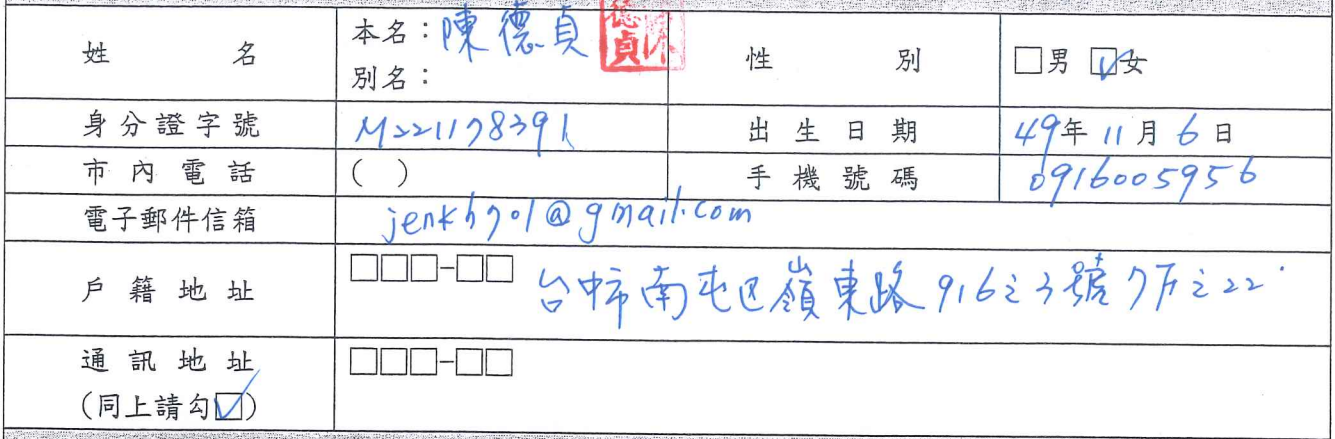 姓名 本名：陳德貞 性別 □男 ☑女
別名：
身分證字號 M221178391 出生日期 49年11月6日
市內電話 ( ) 手機號碼 0916005956
電子郵件信箱 jenkh701@gmail.com
戶籍地址 □□□-□□ 台中市南屯區嶺東路916之3號7F之22
通訊地址 □□□-□□
(同上請勾☑)